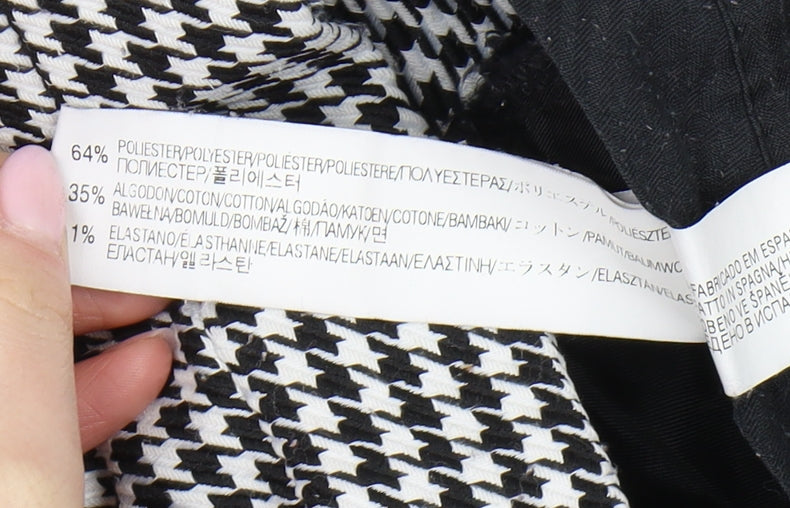 64% POLIESTER/POLYESTER/POLIÉSTER/POLIESTERE/ΠΟΛΥΕΣΤΕΡΑΣ/ポリエステル/POLIESZTE
ПОЛИЕСТЕР/폴리에스터
35% ALGODON/COTON/COTTON/ALGODÃO/KATOEN/COTONE/BAMBAKI/コットン/PAMUT/BAUMWO
BAWEŁNA/BOMULD/BOMBAŽ/棉/ПАМУК/면
1% ELASTANO/ÉLASTHANNE/ELASTANE/ELASTAAN/ΕΛΑΣΤΙΝΗ/エラスタン/ELASZTAN/ELAS
ЕЛАСТАН/엘라스틴
FABRICADO EM ESPA
ATTO IN SPAGNA/H
OBENO VE ŠPANĚ
ДЕНО В ИСПА